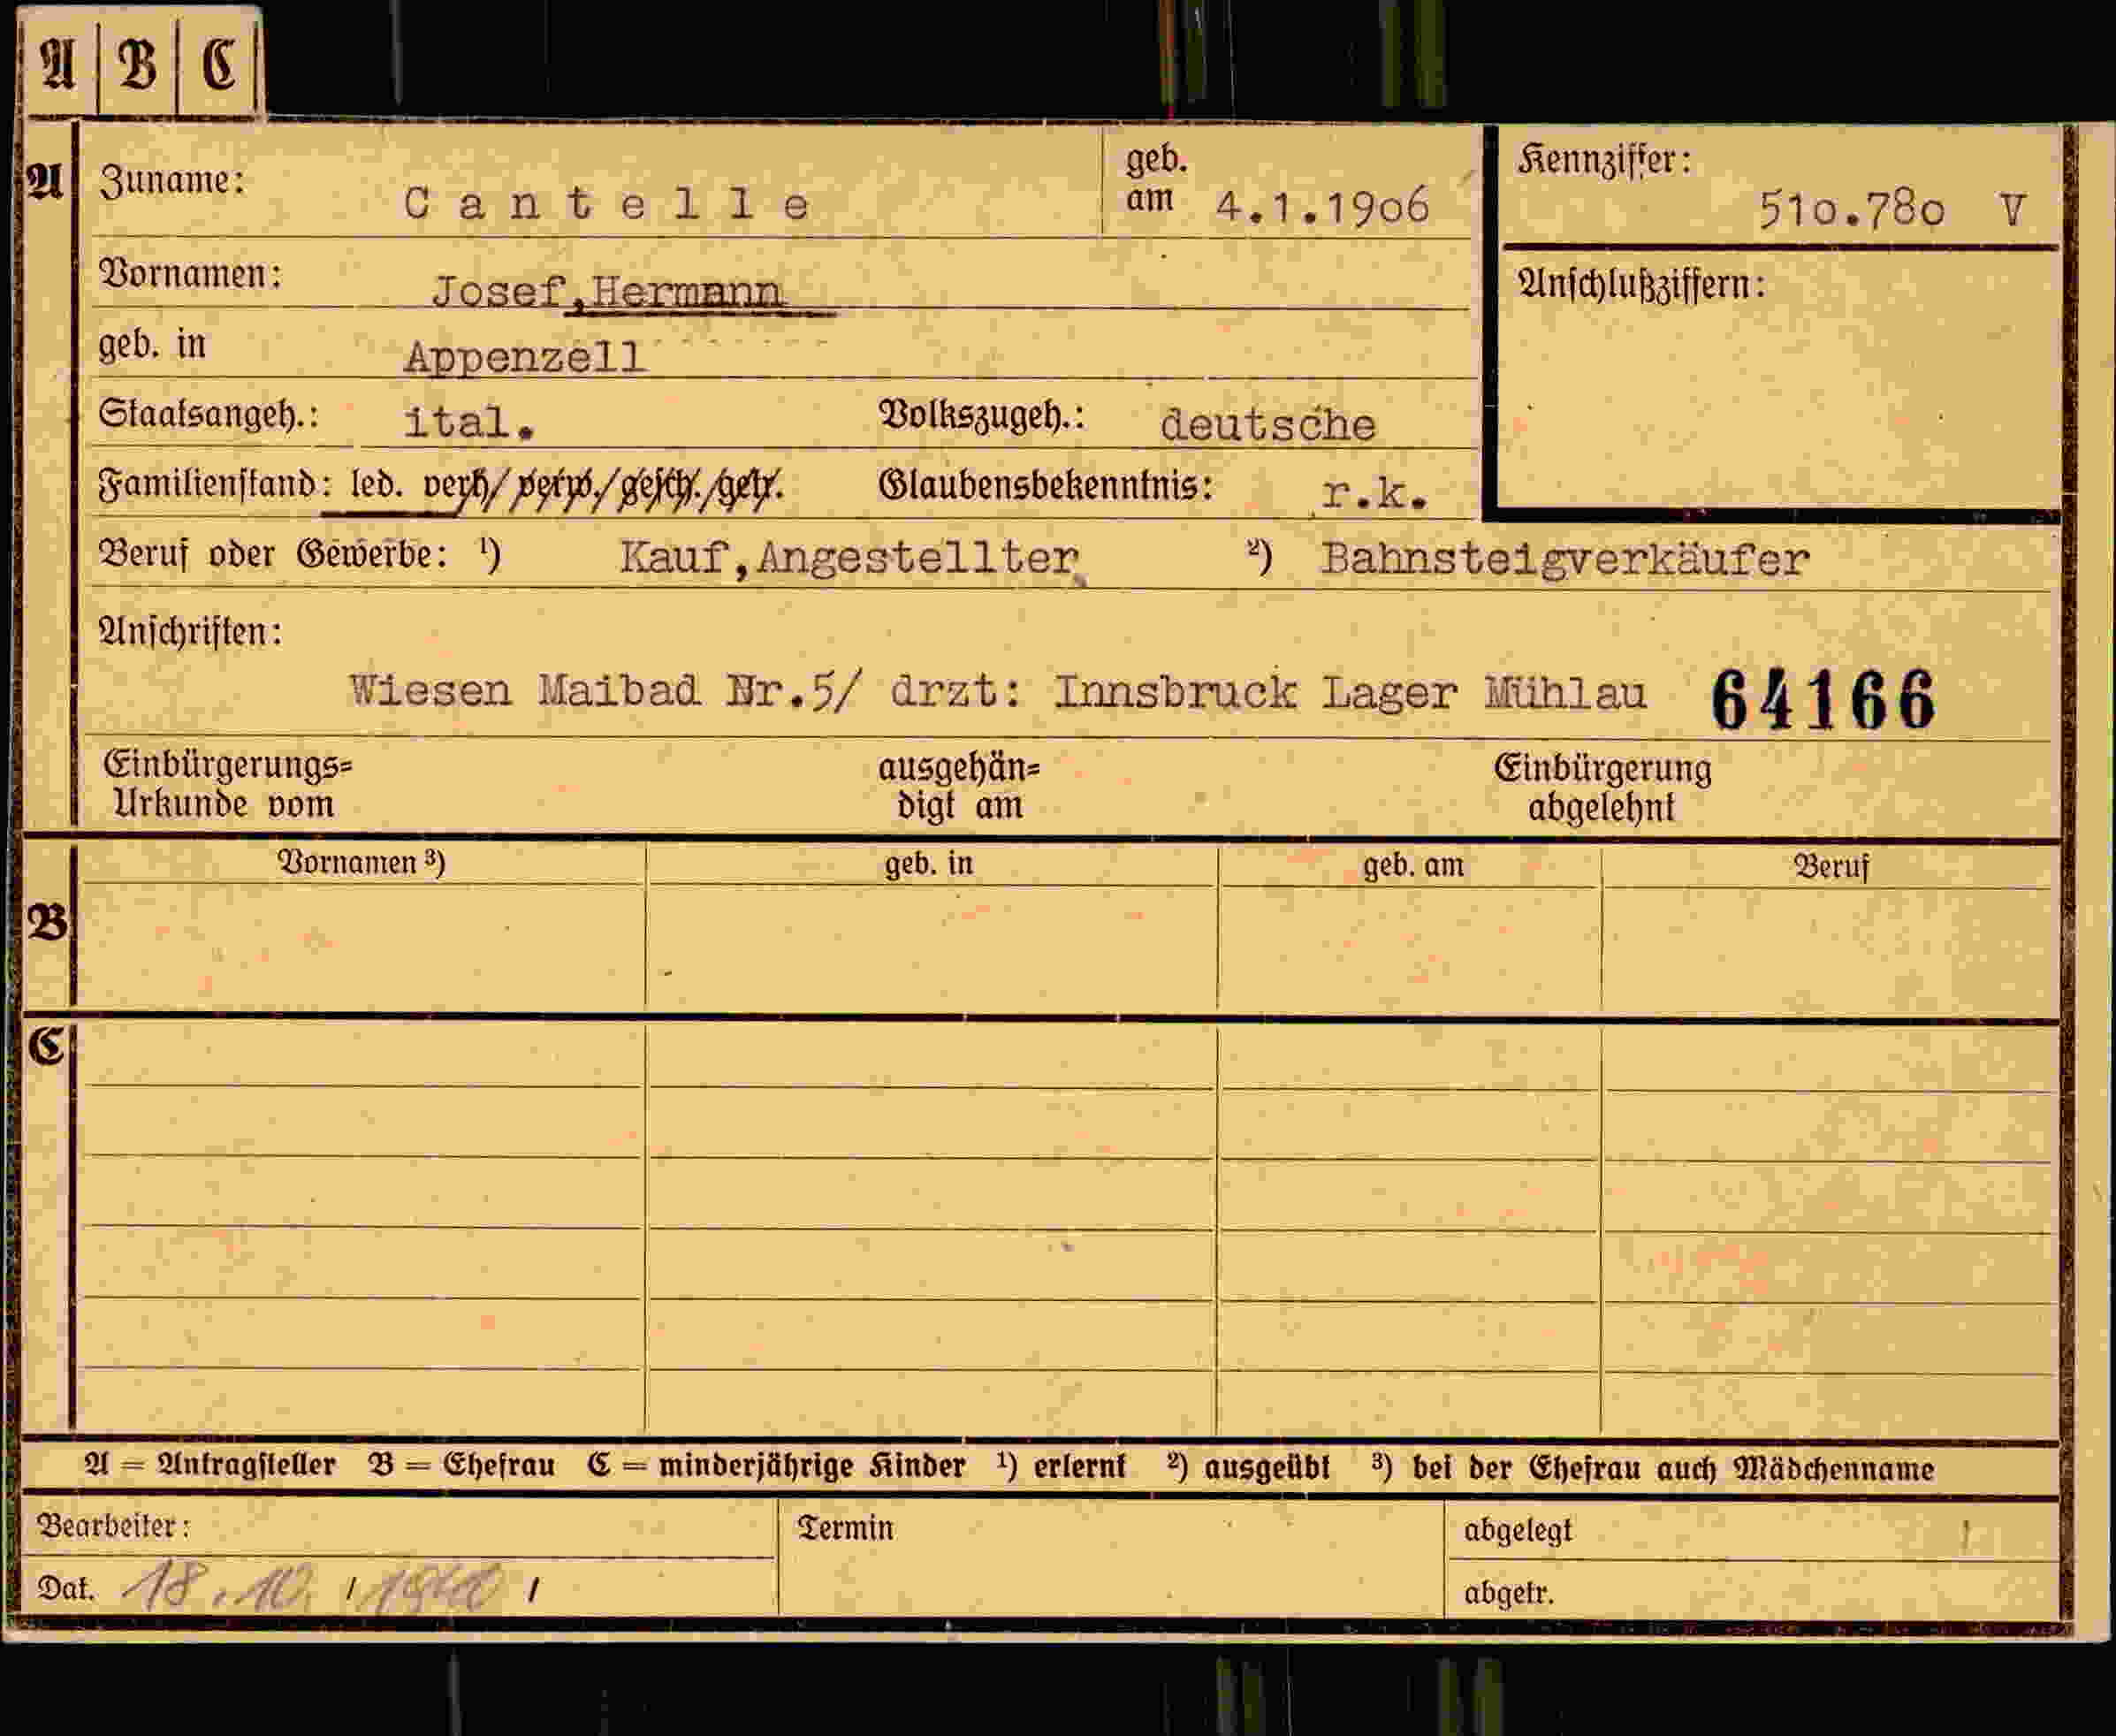 A B C
A Zuname: Cantelle geb. am 4.1.1906 Kennziffer: 51o.78o V
Vornamen: Josef,Hermann Anschlußziffern:
geb. in Appenzell
Staatsangeh.: ital. Volkszugeh.: deutsche
Familienstand: led. verh/verw./gesch./getr. Glaubensbekenntnis: r.k.
Beruf oder Gewerbe: ¹) Kauf,Angestellter ²) Bahnsteigverkäufer
Anschriften:
Wiesen Maibad Nr.5/ drzt: Innsbruck Lager Mühlau 64166
Einbürgerungs= ausgehän= Einbürgerung
Urkunde vom digt am abgelehnt
Vornamen ³) geb. in geb. am Beruf
B
C
A = Antragsteller B = Ehefrau C = minderjährige Kinder ¹) erlernt ²) ausgeübt ³) bei der Ehefrau auch Mädchenname
Bearbeiter: Termin abgelegt
Dat. 18.10. / 1940 / abgetr.